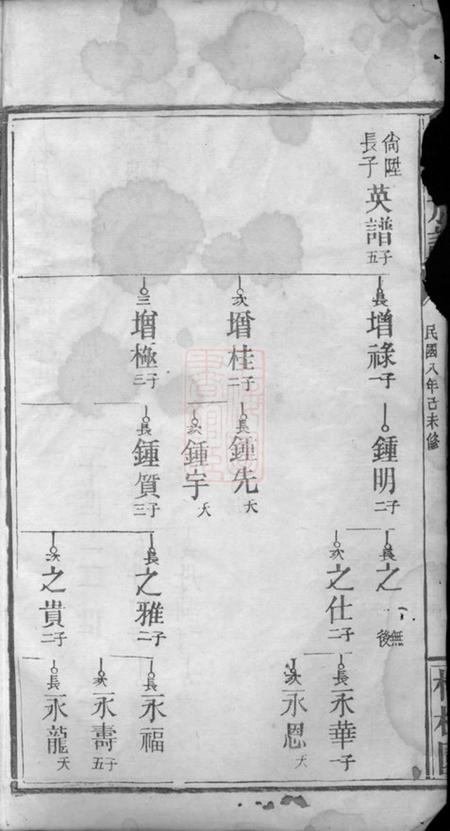 民國八年己未修
尙陞長子英譜五子
長增祿一子
次增桂二子
三增極三子
鍾明二子
長鍾先夭
次鍾宇夭
長鍾質三子
長之 無後
次之仕二子
長之雅二子
次之貴二子
長永華一子
次永恩夭
長永福
次永壽五子
長永龍夭